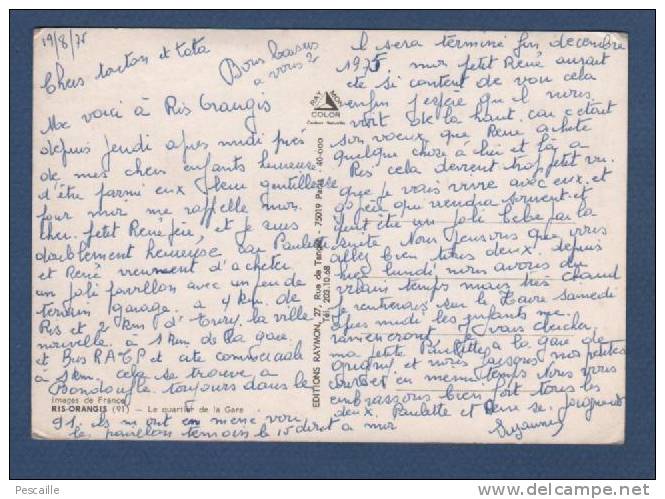 19/8/75
Chers tonton et tata
Bons baisers
à vous 2
Me voici à Ris Orangis
depuis jeudi apres midi près
de mes chers enfants heureuse
d'être parmi eux leur gentillesse
pour moi me rappelle mon
cher petit René feu, et je suis
doublement heureuse car Paulette
et René viennent d'acheter
un joli pavillon avec un peu de
terrain garage. à 4 km. de
Ris et 2 km d'Evry la ville
nouvelle. à 1 km de la gare
et Bus RATP et cité commerciale
à 1 km. cela se trouve à
Bondoufle. toujours dans le
91. ils m'ont en mené voir
le pavillon témoin le 15 août à mor
il sera terminé fin décembre
1975. mon petit René aurait
été si content de voir cela
enfin j'espère que il nous
voit de là haut. car c'était
son voeux que René achète
quelque chose à lui et là à
Ris cela devient trop petit vu
que je vais vivre avec eux. et
qui viendra souvent et
peut être un joli bébé par la
suite. Nous pensons que vous
allez bien tous deux. depuis
hier lundi nous avons du
vilain temps mais très chaud
Je rentrerais sur le samedi
apres midi les enfants me
ramèneront. vais chercher
ma petite Paulette à la gare de
Grigny et nous faisons nos petites
courses en même temps. Nous vous
embrassons bien fort tous les
deux. Paulette et René se joignent
Suzanne
RAY MON
COLOR
40-000
EDITIONS RAYMON, 27, Rue de Tanger - 75019 Paris
Tél. 203.10.68
Images de France
RIS-ORANGIS (91) - Le quartier de la Gare
Pescaille
http://www.delcampe.net